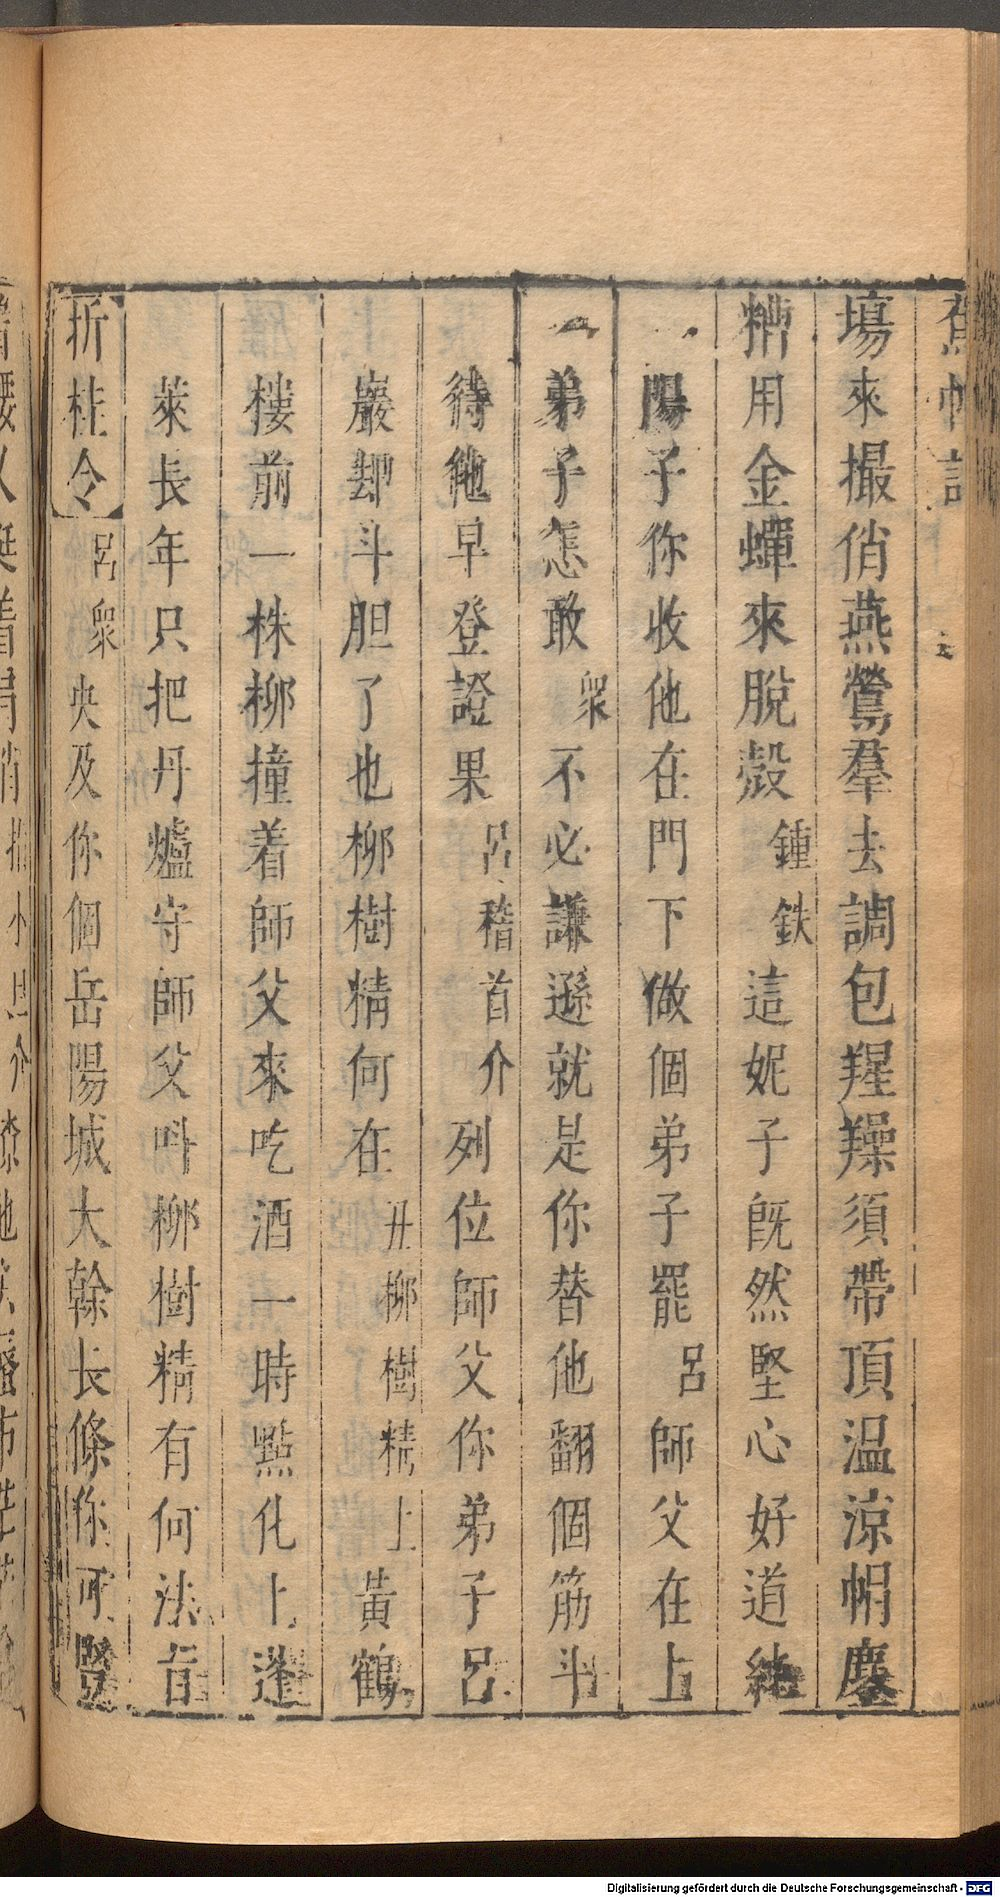 蕉帕記
塲來撮俏燕鶯羣去調包羥羺須帶頂温涼帽麈
糟用金蟬來脫殼鍾鉄這妮子旣然堅心好道純
陽子你收他在門下做個弟子罷呂師父在上
弟子怎敢衆不必謙遜就是你替他翻個筋斗
待他早登證果呂稽首介列位師父你弟子呂
巖却斗胆了也柳樹精何在丑柳樹精上黃鶴
樓前一株柳撞着師父來吃酒一時點化上蓬
萊長年只把丹爐守師父呌柳樹精有何法旨
折桂令呂衆央及你個岳陽城大幹長條你可豎
Digitalisierung gefördert durch die Deutsche Forschungsgemeinschaft - DFG